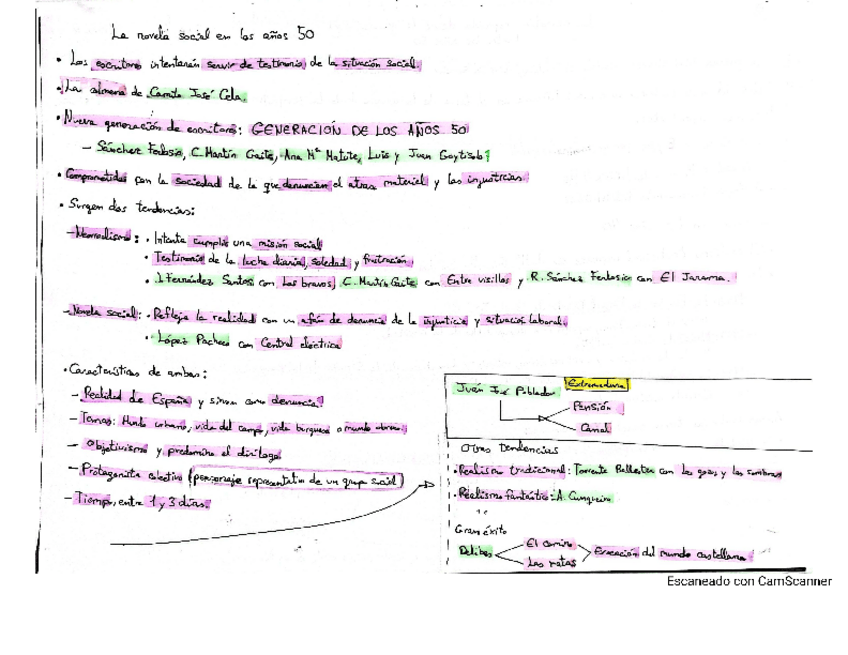 La novela social en los años 50
• Los escritores intentarán servir de testimonio de la situación social.
• La colmena de Camilo José Cela.
• Nueva generación de escritores: GENERACIÓN DE LOS AÑOS 50
– Sánchez Ferlosio, C. Martín Gaite, Ana Mª Matute, Luis y Juan Goytisolo
• Comprometidos con la sociedad de la que denuncian el atraso material y las injusticias.
• Surgen dos tendencias:
– Neorrealismo: • Intenta cumplir una misión social
• Testimonio de la lucha diaria, soledad y frustración
• J. Fernández Santos con Los bravos, C. Martín Gaite con Entre visillos y R. Sánchez Ferlosio con El Jarama.
– Novela social: • Refleja la realidad con un afán de denuncia de la injusticia y situación laboral.
• López Pacheco con Central eléctrica
• Características de ambas:
– Realidad de España y sirven como denuncia.
– Temas: Mundo urbano, vida del campo, vida burguesa o mundo obrero.
– Objetivismo y predomina el diálogo
– Protagonista colectivo (personaje representativo de un grupo social)
– Tiempo, entre 1 y 3 días.
Juán José Poblador Extremadura
Pensión
Otras tendencias
• Realismo tradicional: Torrente Ballester con Los gozos y las sombras
• Realismo fantástico: A. Cunqueiro
Gran éxito
Delibes El camino
Las ratas
Evocación del mundo castellano
Escaneado con CamScanner